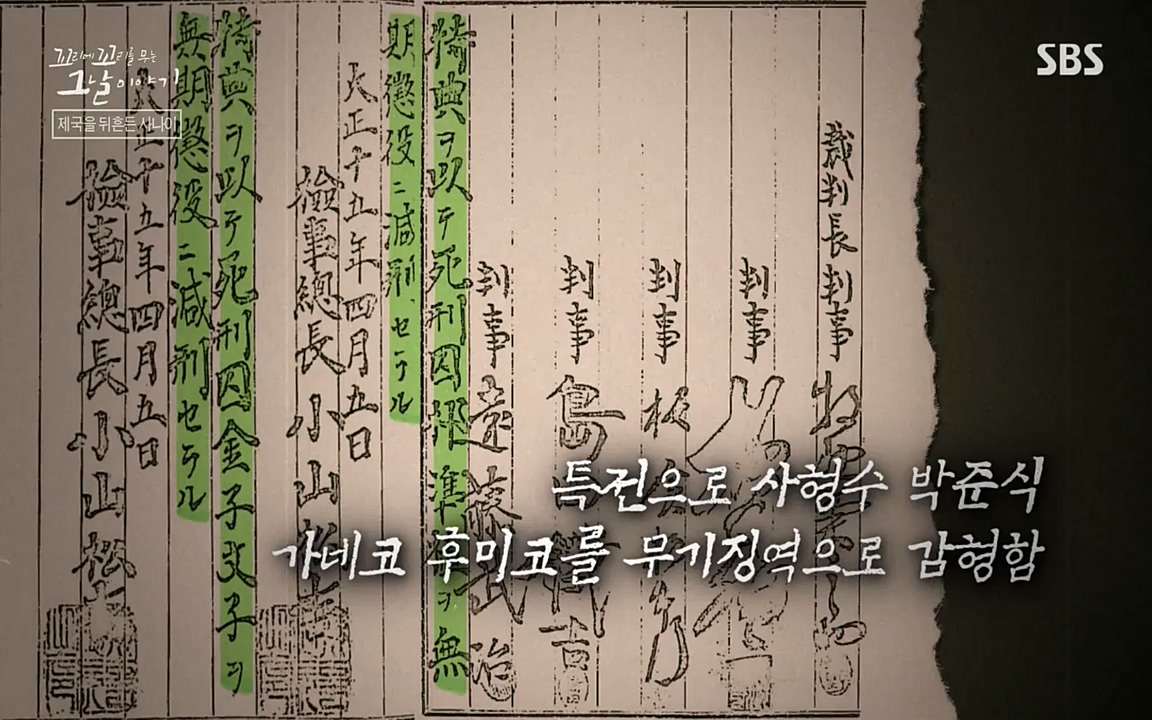 꼬리에 꼬리를 무는
그날 이야기
제국을 뒤흔든 사나이
SBS
裁判長判事
判事
判事
判事
判事 島
判事 遠藤武治
特典ヲ以テ死刑囚朴準植ヲ無
期懲役ニ減刑セラル
大正十五年四月五日
檢事總長小山松吉
特典ヲ以テ死刑囚金子文子ヲ
無期懲役ニ減刑セラル
大正十五年四月五日
檢事總長小山松吉
특전으로 사형수 박준식
가네코 후미코를 무기징역으로 감형함